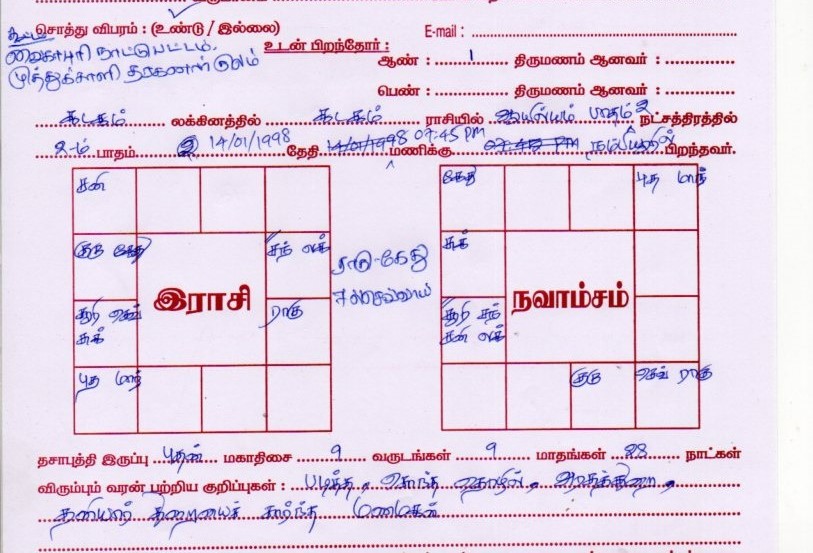 சொத்து விபரம் : (உண்டு / இல்லை) E-mail :
கூட்டம்
வைகாபுரி நாட்டுபட்டம், உடன் பிறந்தோர் :
முத்துக்சாளி குலம் ஆண் : 1 திருமணம் ஆனவர் :
பெண் : திருமணம் ஆனவர் :
கடகம் லக்கினத்தில் கடகம் ராசியில் ஆயில்யம் பாதம் 2 நட்சத்திரத்தில்
2-ம் பாதம் 14/01/1998 தேதி 14/01/1998 07:45 PM மணிக்கு பிறந்தவர்.
சனி கேது புத மாந்
குரு கேது சந் லக் ராகு-கேது சுக்
7 ல் செவ்வாய்
இராசி நவாம்சம்
சூரி செவ் ராகு சூரி சந்
சுக் சனி லக்
புத மாந் குரு செவ் ராகு
தசாபுத்தி இருப்பு புதன் மகாதிசை 9 வருடங்கள் 9 மாதங்கள் 28 நாட்கள்
விரும்பும் வரன் பற்றிய குறிப்புகள் : படித்த, சொந்த தொழில், அரசுத்துறை,
தனியார் துறையைச் சார்ந்த மணமகன்